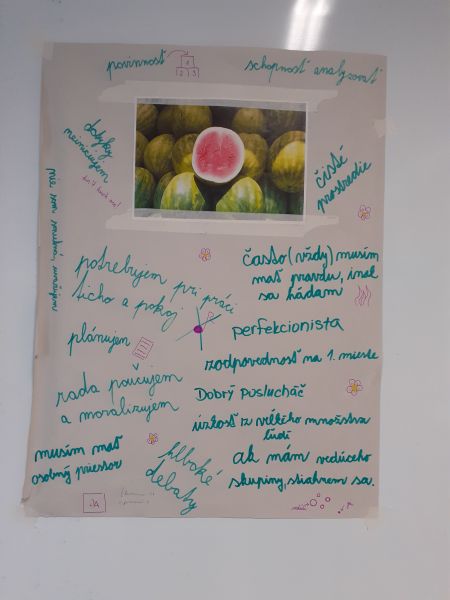 povinnosť
1
2 3
schopnosť analyzovať
dotyky
neiniciujem
don't touch me!
čisté
prostredie
potrebujem pri práci
ticho a pokoj
často (vždy) musím
mať pravdu, inak
sa hádam
plánujem
perfekcionista
zodpovednosť na 1. mieste
rada poučujem
a moralizujem
Dobrý poslucháč
úzkosť z veľkého množstva
ľudí
musím mať
osobný priestor
hlboké
debaty
ak mám vedúceho
skupiny, stiahnem sa.
JA